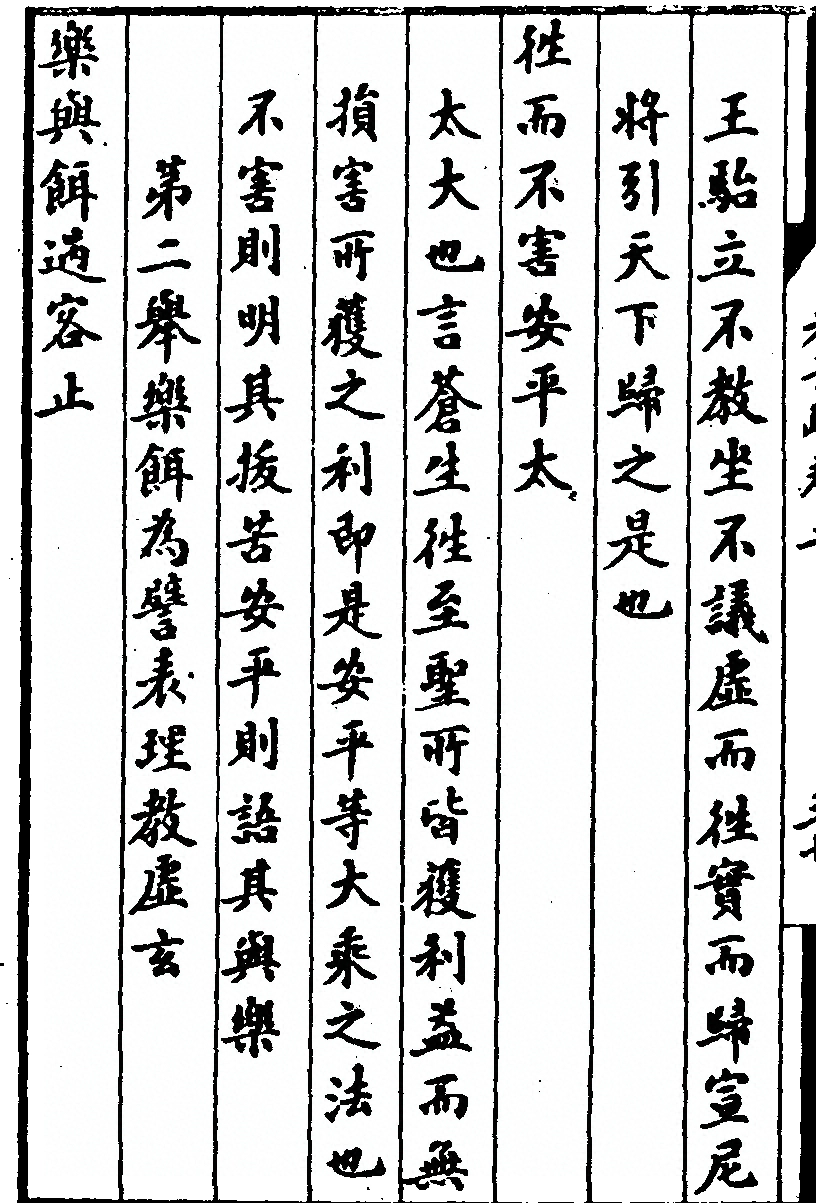 王駘立不教坐不議虛而徃實而歸宣尼
將引天下歸之是也
徃而不害安平太
太大也言蒼生徃至聖所皆獲利益而無
損害所獲之利即是安平等大乘之法也
不害則明其拔苦安平則語其與樂
第二舉樂餌為譬表理教虛玄
樂與餌過客止